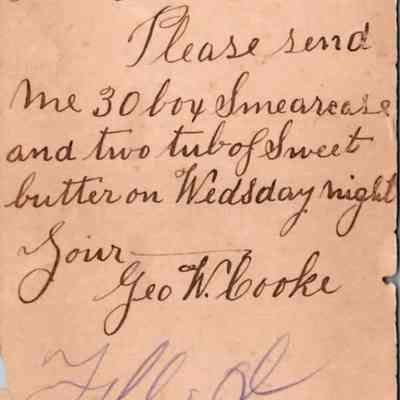 Please send
me 30 box Smearcase
and two tub of Sweet
butter on Wedsday night
Your
Geo W. Cooke